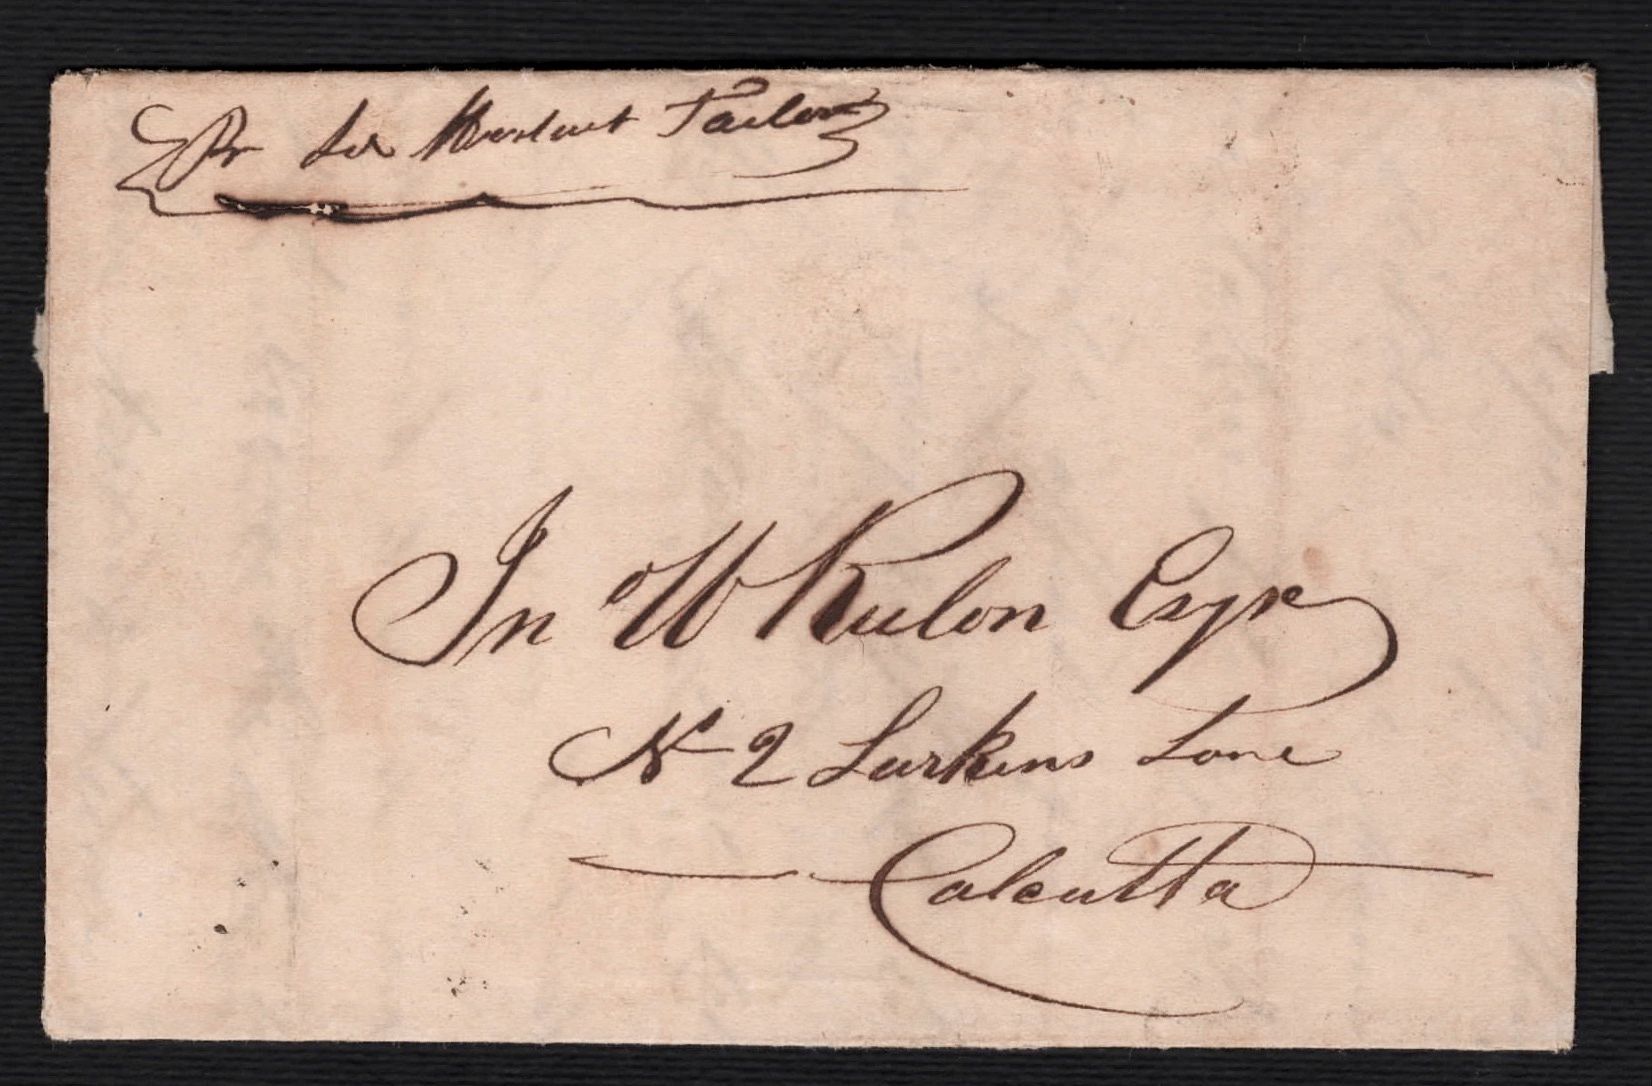 Pr Sir Herbert Tailor
Jn W Rulon Esqre
No 2 Larkins Lane
Calcutta